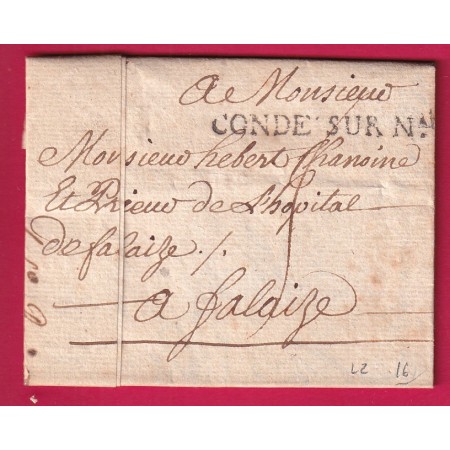 A Monsieur
CONDE SUR Nau
Monsieur hebert Chanoine
Et Prieur de Lhopital
de falaize ./.
a falaize
L2 16